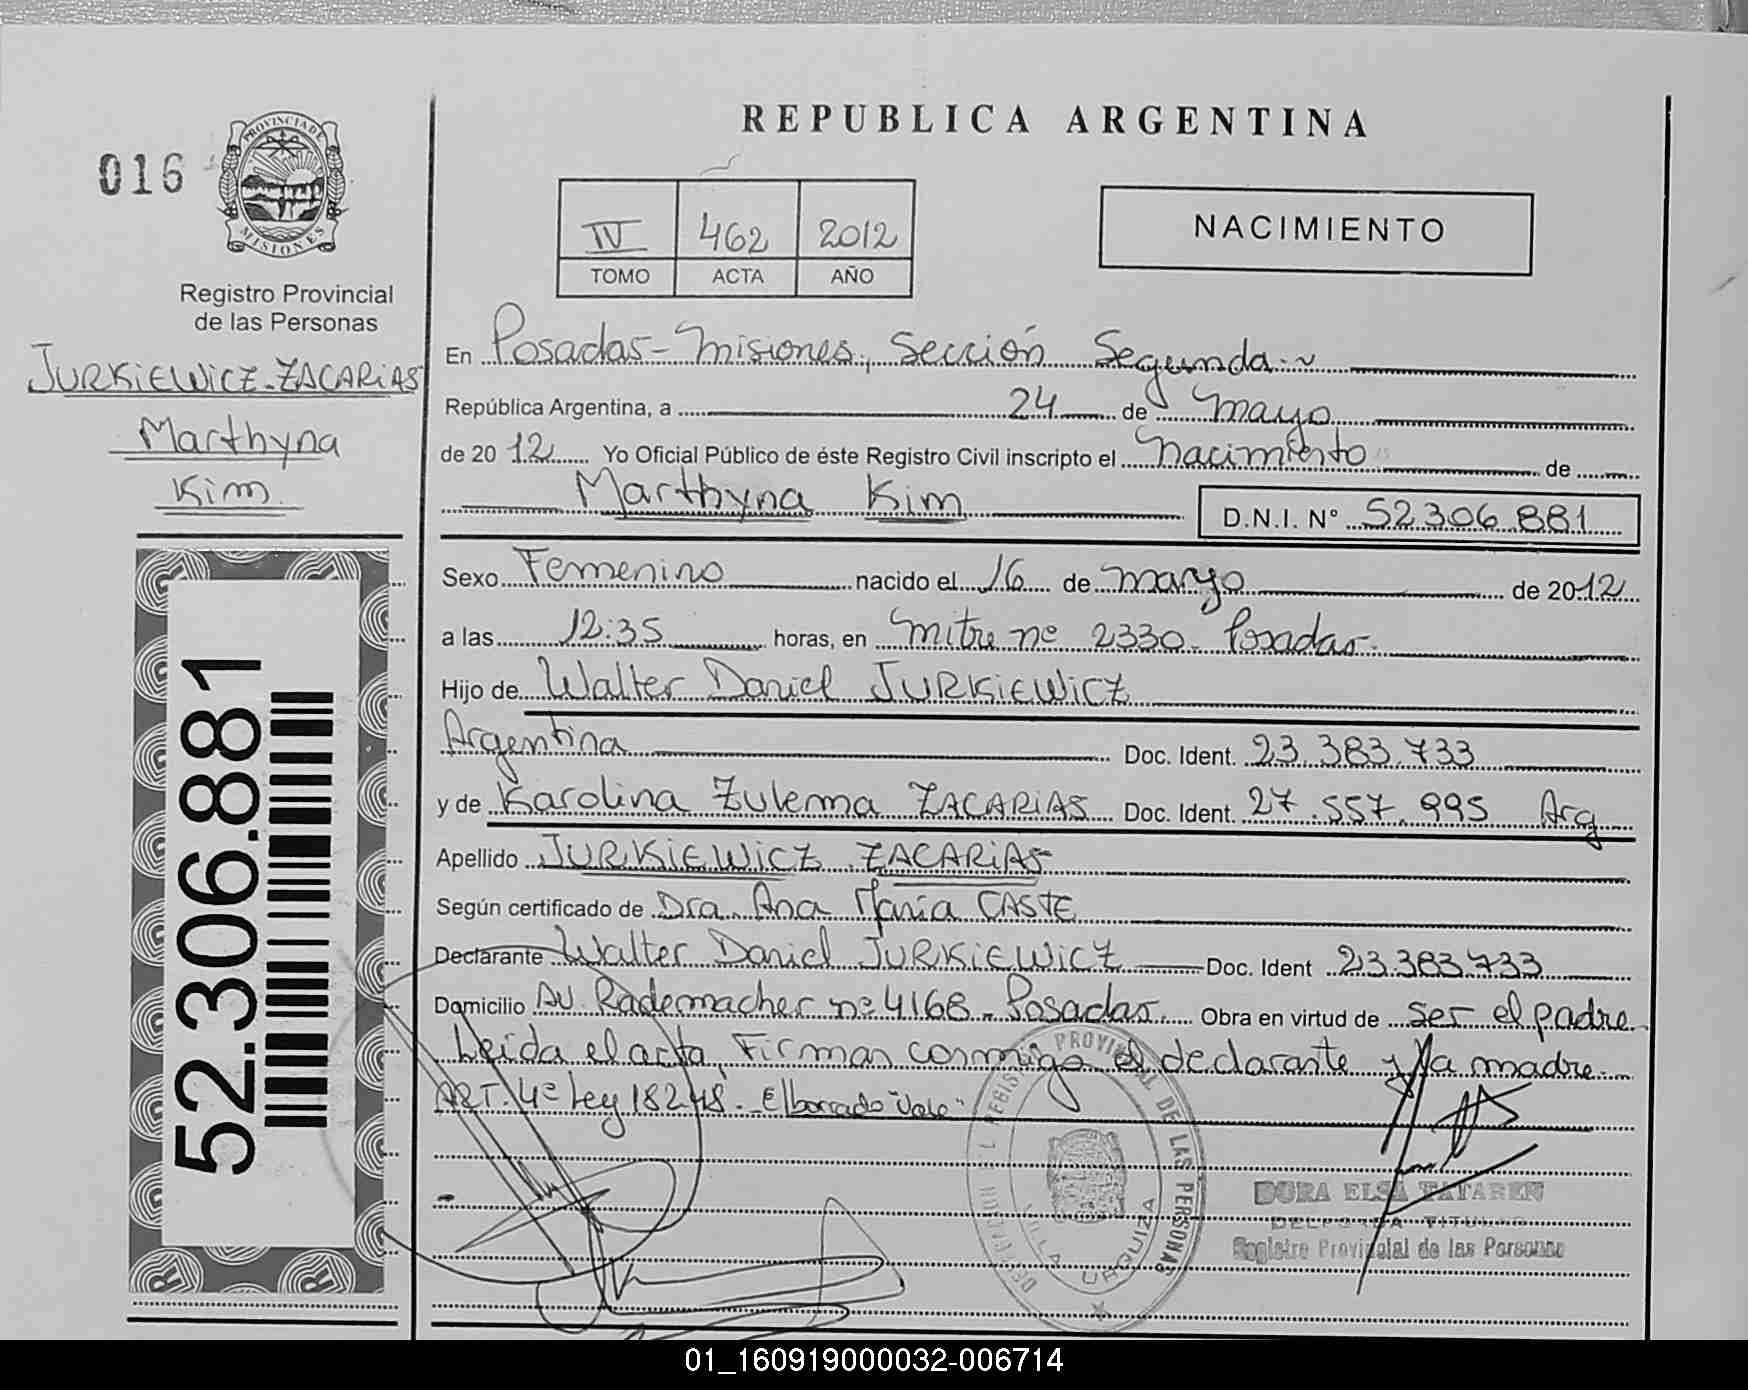 REPUBLICA ARGENTINA
016
PROVINCIA DE
MISIONES
Registro Provincial
de las Personas
JURKiEWiCZ-ZACARiAS
Marthyna
Kim
52.306.881
IV 462 2012
TOMO ACTA AÑO
NACIMIENTO
En Posadas-Misiones, Sección Segunda.
República Argentina, a 24 de mayo
de 2012 Yo Oficial Público de éste Registro Civil inscripto el nacimiento de
Marthyna Kim D.N.I. N° 52.306.881
Sexo Femenino nacido el 16 de mayo de 2012
a las 12:35 horas, en mitre nº 2330- Posadas.
Hijo de Walter Daniel JURKiEWiCZ
Argentina Doc. Ident. 23.383.733
y de Karolina Zulema ZACARiAS Doc. Ident. 27.557.995 Arg
Apellido JURKiEWiCZ ZACARiAS
Según certificado de Dra. Ana María CASTE
Declarante Walter Daniel JURKiEWiCZ Doc. Ident 23.383.733
Domicilio AV. Rademacher nº 4168 - Posadas. Obra en virtud de ser el padre
Leida el acta, Firman conmigo el declarante y la madre.
ART. 4º Ley 18248. El borrado "Vale"
PROVINCIAL DE LAS PERSONAS
VILLA URQUIZA
DORA ELSA TATAREN
DELEGADA TITULAR
Registro Provincial de las Personas
01_160919000032-006714